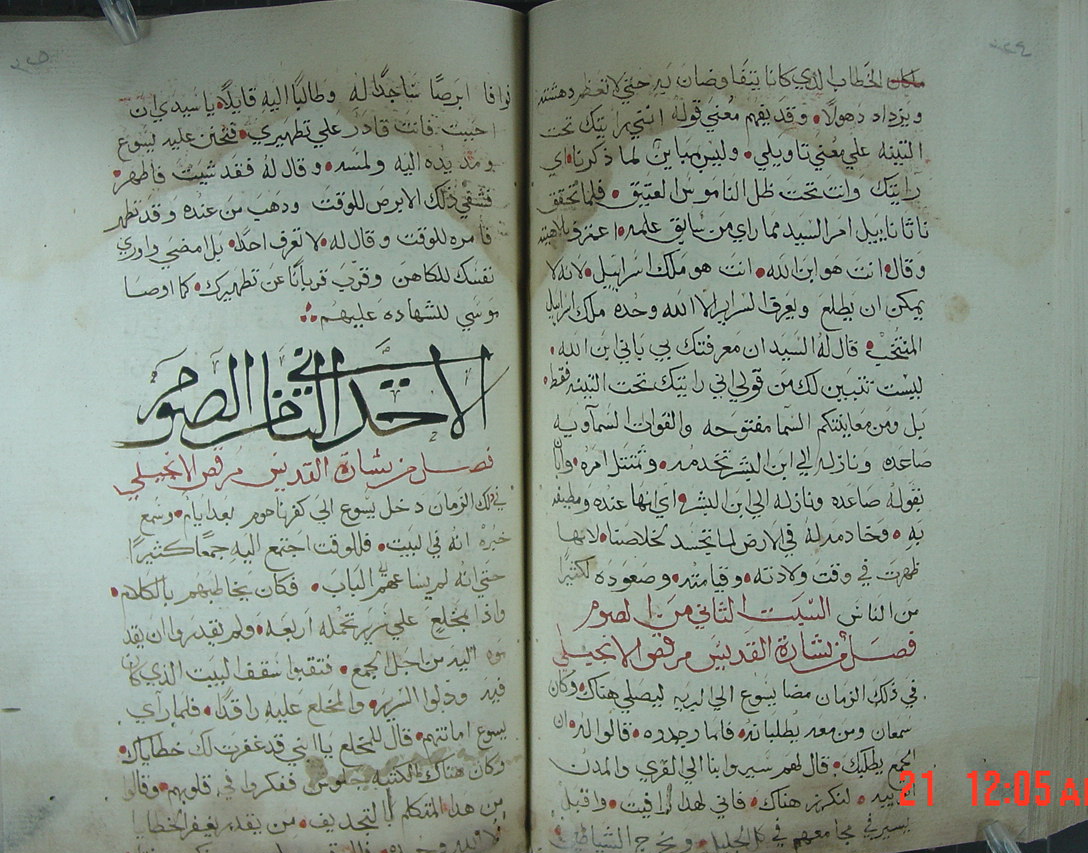 الخطاب الذي كانا يتفاوضان به حتي لا تعظم دهشته
ويزداد دهولًا وقد يفهم معني قوله انني رايتك تحت
التينه علي معني تاويلي وليس مباين لما ذكرنا اي
رايتك وانت تحت ظل الناموس العتيق فلما تحقق
ناثاناييل امر السيد مما راي من سابق علمه اعترف بلاهيته
وقال انت هو ابن الله انت هو ملك اسراييل لانه لا
يمكن ان يطلع ويعرف السراير الا الله وحده ملك اسراييل
المنتخب قال له السيد ان معرفتك بي باني ابن الله
ليست تتبين لك من قولي اني رايتك تحت التينه فقط
بل ومن معاينتكم السما مفتوحه والقوات السماويه
صاعده ونازله الي ابن البشر تخدمه وتمتثل امره وايا
بقوله صاعده ونازله الي ابن البشر اي انها عنده ومطيفه
به وخادمه له في الارض لما تجسد لخلاصنا لانها
ظهرت في وقت ولادته وقيامته وصعوده لكثيرًا
من الناس السبت الثاني من الصوم
فصل من بشارة القديس مرقص الانجيلي
في ذلك الزمان مضا يسوع الي البريه ليصلي هناك وكان
سمعان ومن معه يطلبانه فلما وجدوه قالوا له ان
الجمع يطلبك قال لهم سيروا بنا الي القري والمدن
لنكرز هناك فاني لهذا وافيت واقبل
يسير في مجامعهم في كل الجليل ويخرج الشياطين
فوافا ابرصًا ساجدًا له وطالبًا اليه قايلًا يا سيدي ان
احببت فانت قادر علي تطهيري فتحنن عليه يسوع
ومد يده اليه ولمسه وقال له فقد شيت فاطهر
فشفي ذلك الابرص للوقت ودهب من عنده وقد تطهر
فامره للوقت وقال له لا تعرف احدًا بل امضي واوري
نفسك للكاهن وقرب قربانًا عن تطهيرك كما اوصا
موسي للشهاده عليهم
الاحد الثاني من الصوم
فصل من بشارة القديس مرقص الانجيلي
في ذلك الزمان دخل يسوع الي كفرناحوم بعد ايام وسمع
خبره انه في البيت فللوقت اجتمع اليه جمعًا كثيرًا
حتي انه لم يسا عهم الباب فكان يخاطبهم بالكلام
واذا بمخلع علي سرير تحمله اربعه ولم يقدروا ان يقد
موه اليه من اجل الجمع فنقبوا سقف البيت الذي كان
فيه ودلوا السرير والمخلع عليه راقدًا فلما راي
يسوع امانتهم قال للمخلع يا ابني قد غفرت لك خطاياك
وكان هناك الكتبه جلوس ففكروا في قلوبهم وقالوا
من هدا المتكلم بالتجديف من يقدر يغفر الخطايا
الا الله وحده
21 12:05 AM